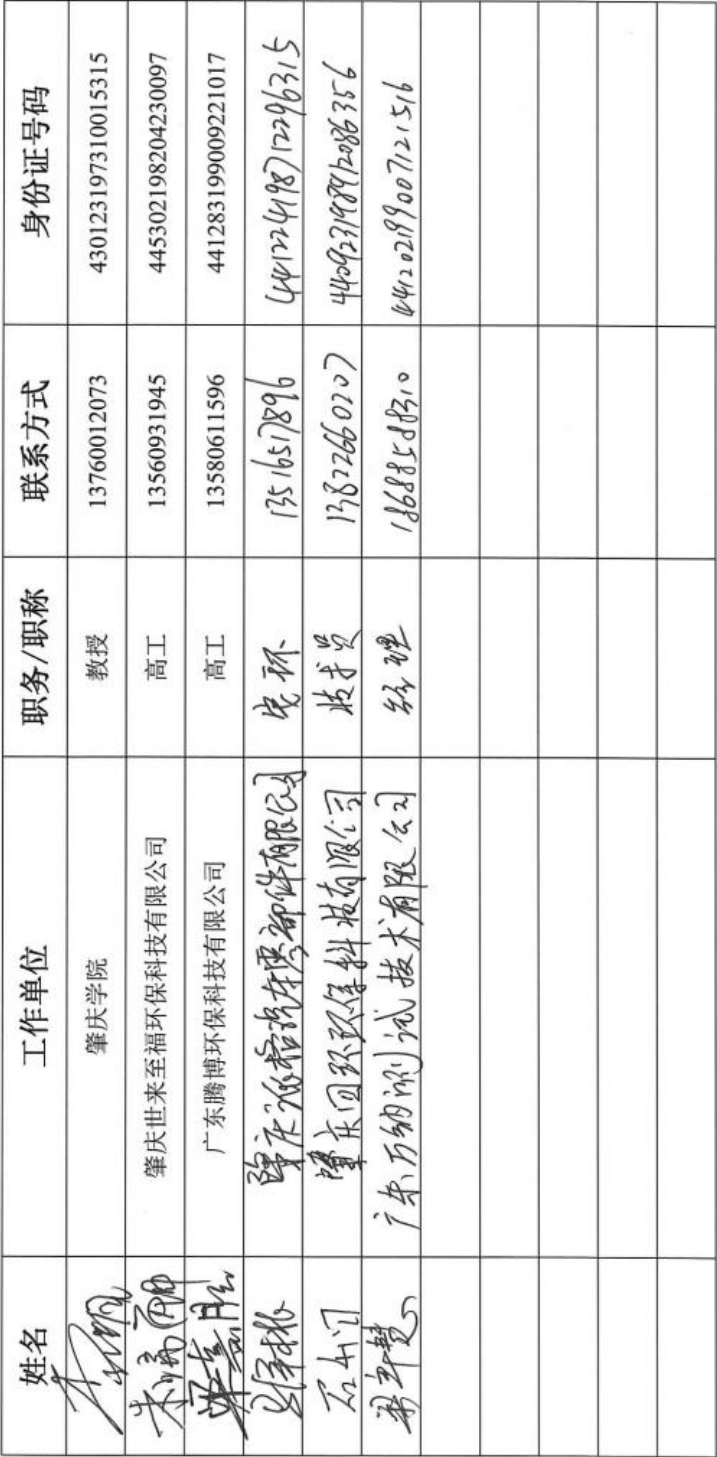 姓名 工作单位 职务/职称 联系方式 身份证号码
肇庆学院 教授 13760012073 430123197310015315
肇庆世来至福环保科技有限公司 高工 13560931945 445302198204230097
广东腾博环保科技有限公司 高工 13580611596 441283199009221017
汽车零部件有限公司 安环 13516517896 441224198712296315
肇庆回环环保科技有限公司 技术员 13822660207 440923198912086356
广东万纳测试技术有限公司 经理 18688588310 441202199007121516